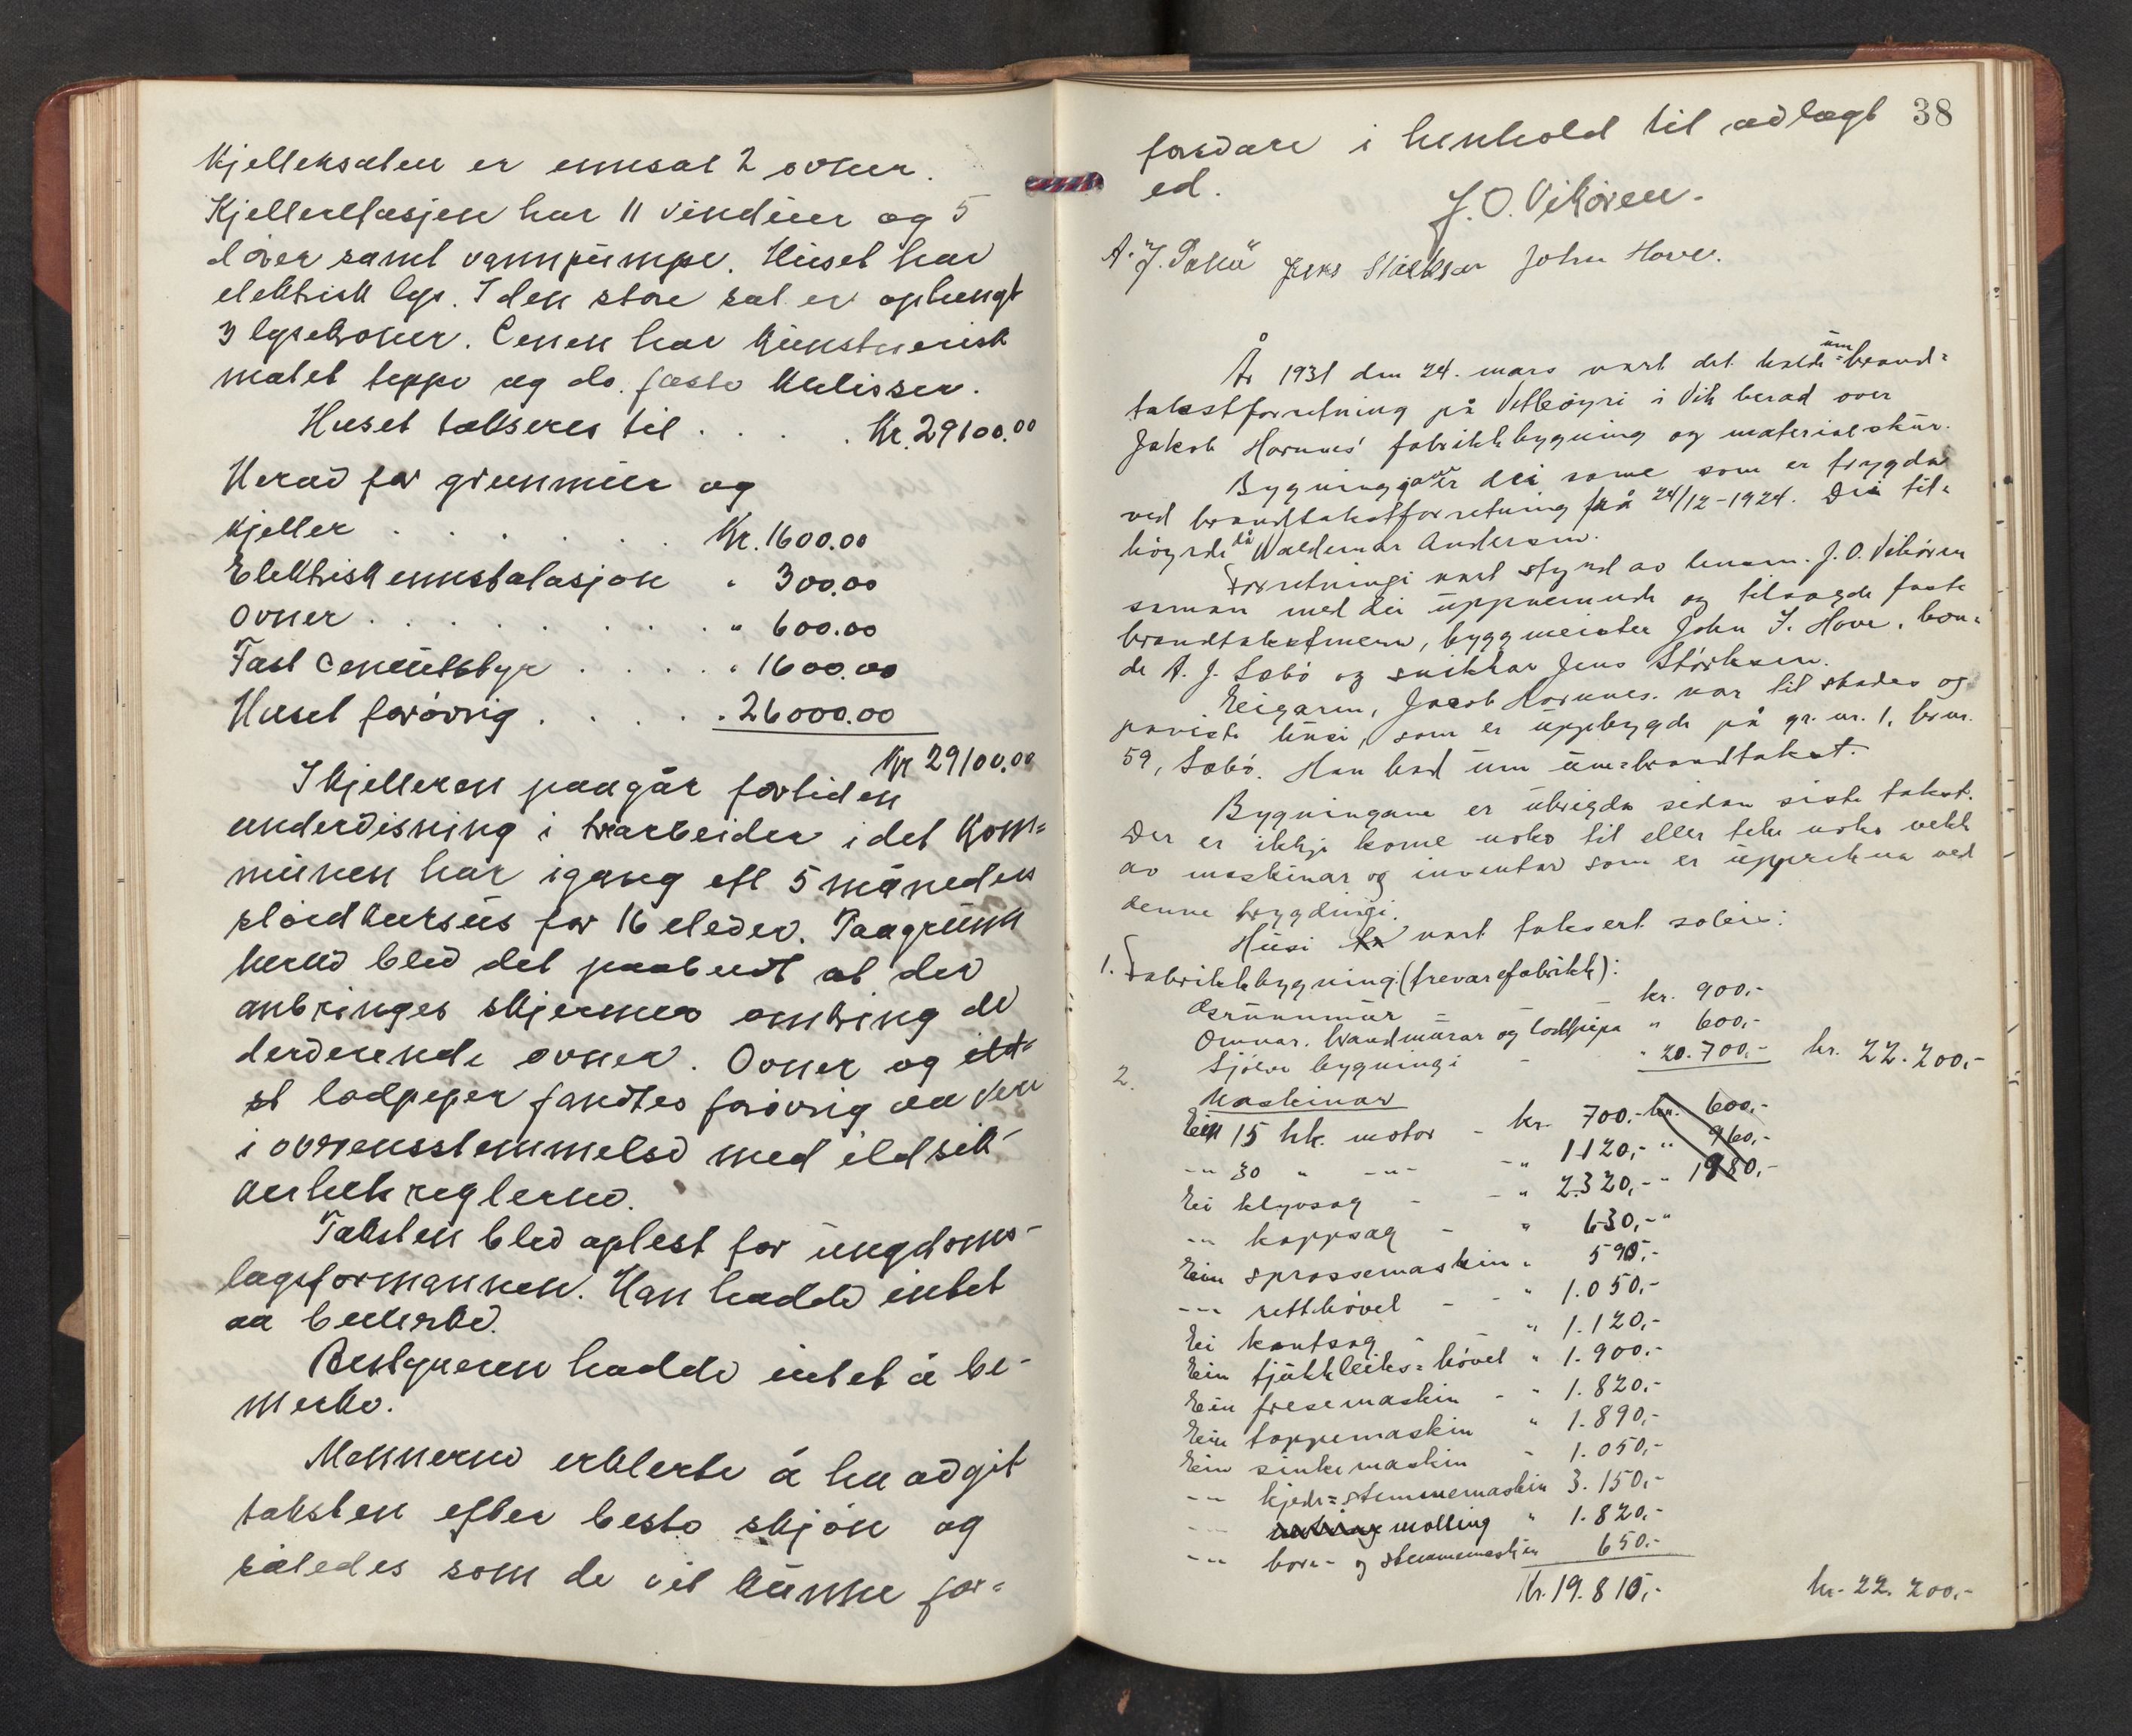 Kjellersalen er ennsat 2 ovner.
Kjelleretasjen har 11 vinduer og 5
dører samt vannpumpe. Huset har
elektrisk lys. I den store sal er ophengt
3 lysekroner. Cenen har kunstnerisk
malet teppe og do. faste kulisser.
Huset takseres til . . . . Kr. 29100.00
Herav for grunnmur og
kjeller . . . . . . Kr. 1600.00
Elektrisk ennstalasjon " 300.00
Ovner . . . . . . . . " 600.00
Fast ceneutstyr . . . . " 1600.00
Huset forøvrig . . . . . " 26000.00
Kr 29100.00
I kjelleren paagår fortiden
undervisning i trearbeider i det kom=
munen har igang ett 5 måneders
sløidkursus for 16 elever. Paagrunn
herav blev det paabudt at der
anbringes skjermer omkring de
derværende ovner. Ovner og ild=
st lodpeper fandtes forøvrig aa vere
i overensstemmelse med ildsik-
kerhetsreglerne.
Taksten blev oplest for ungdoms-
lagsformannen. Han hadde intet
aa bemerke.
Bestyreren hadde intet å be-
merke.
Mennerne erklerte å ha avgit
taksten efter beste skjøn og
således som de vil kunne for=
38
svare i henhold til avlagt
ed.
J. O. Vikøren.
A. J. Sæbø Jens Stærkson John Hove.
År 1931 den 24. mars vart det haldi um=brand=
takstforretning på Vetleøyri i Vik herad over
Jakob Hornnes' fabrikkbygning og materialskur.
Bygningane er dei same som er trygda
ved brandtakstforretning frå 24/12-1924. Dei til=
høyrde då Waldemar Andersen.
Forretningi vart styrd av lensm. J. O. Vikøren
saman med dei uppnemnde og tilsagde faste
brandtakstmenn, byggmeister John J. Hove, bon=
de A. J. Sæbø og snikkar Jens Størksen.
Eigaren, Jacob Hornnes. var til stades og
paviste husi, som er uppbygde på gr. nr. 1, br.nr.
59, Sæbø. Han bad um um=brandtakst.
Bygningane er ubrigda sidan siste takst.
Der er ikkje kome noko til eller teke noko vekk
av maskinar og inventar som er upprekna ved
denne trygdingi.
Husi vart taksert soleis:
1. Fabrikkbygning (trevarefabrikk):
Grunnmur - - kr. 900,-
Omnar, brandmurar og lodpipa " 600,-
Sjølve bygningi - " 20.700,- kr. 22.200,-
2. Maskinar
Ein 15 hk. motor - kr. 700.- kr. 600,-
-"- 30 " -"- -" 1120,- " 960,-
Ei klyvsag - -" 2320,- " 1980,-
-"- kappsag - " 630,- "
Ein sprossemaskin " 590,-
-"- retthövel - - " 1.050,-
Ei kantsag - " 1.120,-
Ein tjukkleiks=hövel " 1.900,-
Ein fresemaskin - " 1.820,-
Ein tappemaskin " 1.890,-
Ein sinkemaskin - 1.050,-
-"- kjede=stemmemaskin 3.150,-
-"- molling " 1.820,-
-"- bore- og stemmemaskin 650.-
Kr. 19.810,- kr. 22.200,-